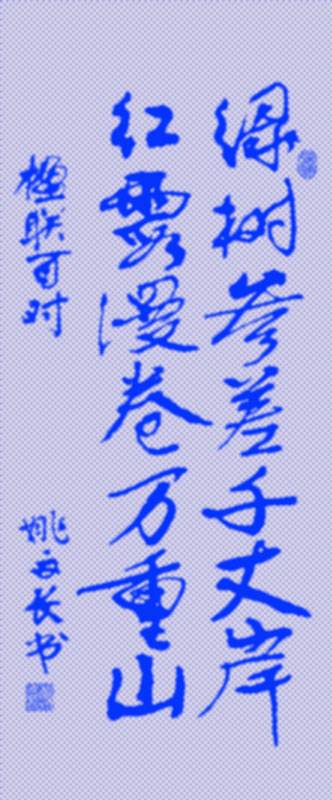 绿树参差千丈岸
红霞漫卷万重山
楹联可对
姚文长书